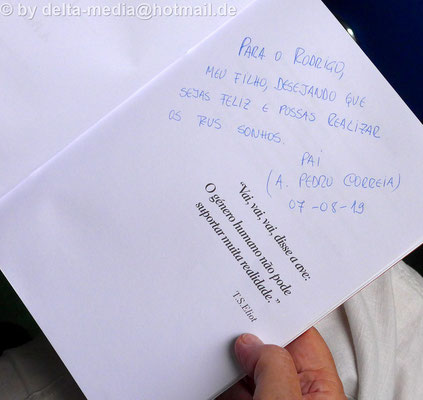 © by delta-media@hotmail.de
PARA O RODRIGO,
MEU FILHO, DESEJANDO QUE
SEJAS FELIZ E POSSAS REALIZAR
OS TEUS SONHOS.
PAI
(A. PEDRO CORREIA)
07-08-19
“Vai, vai, vai, disse a ave:
O género humano não pode
suportar muita realidade.”
T.S.Eliot